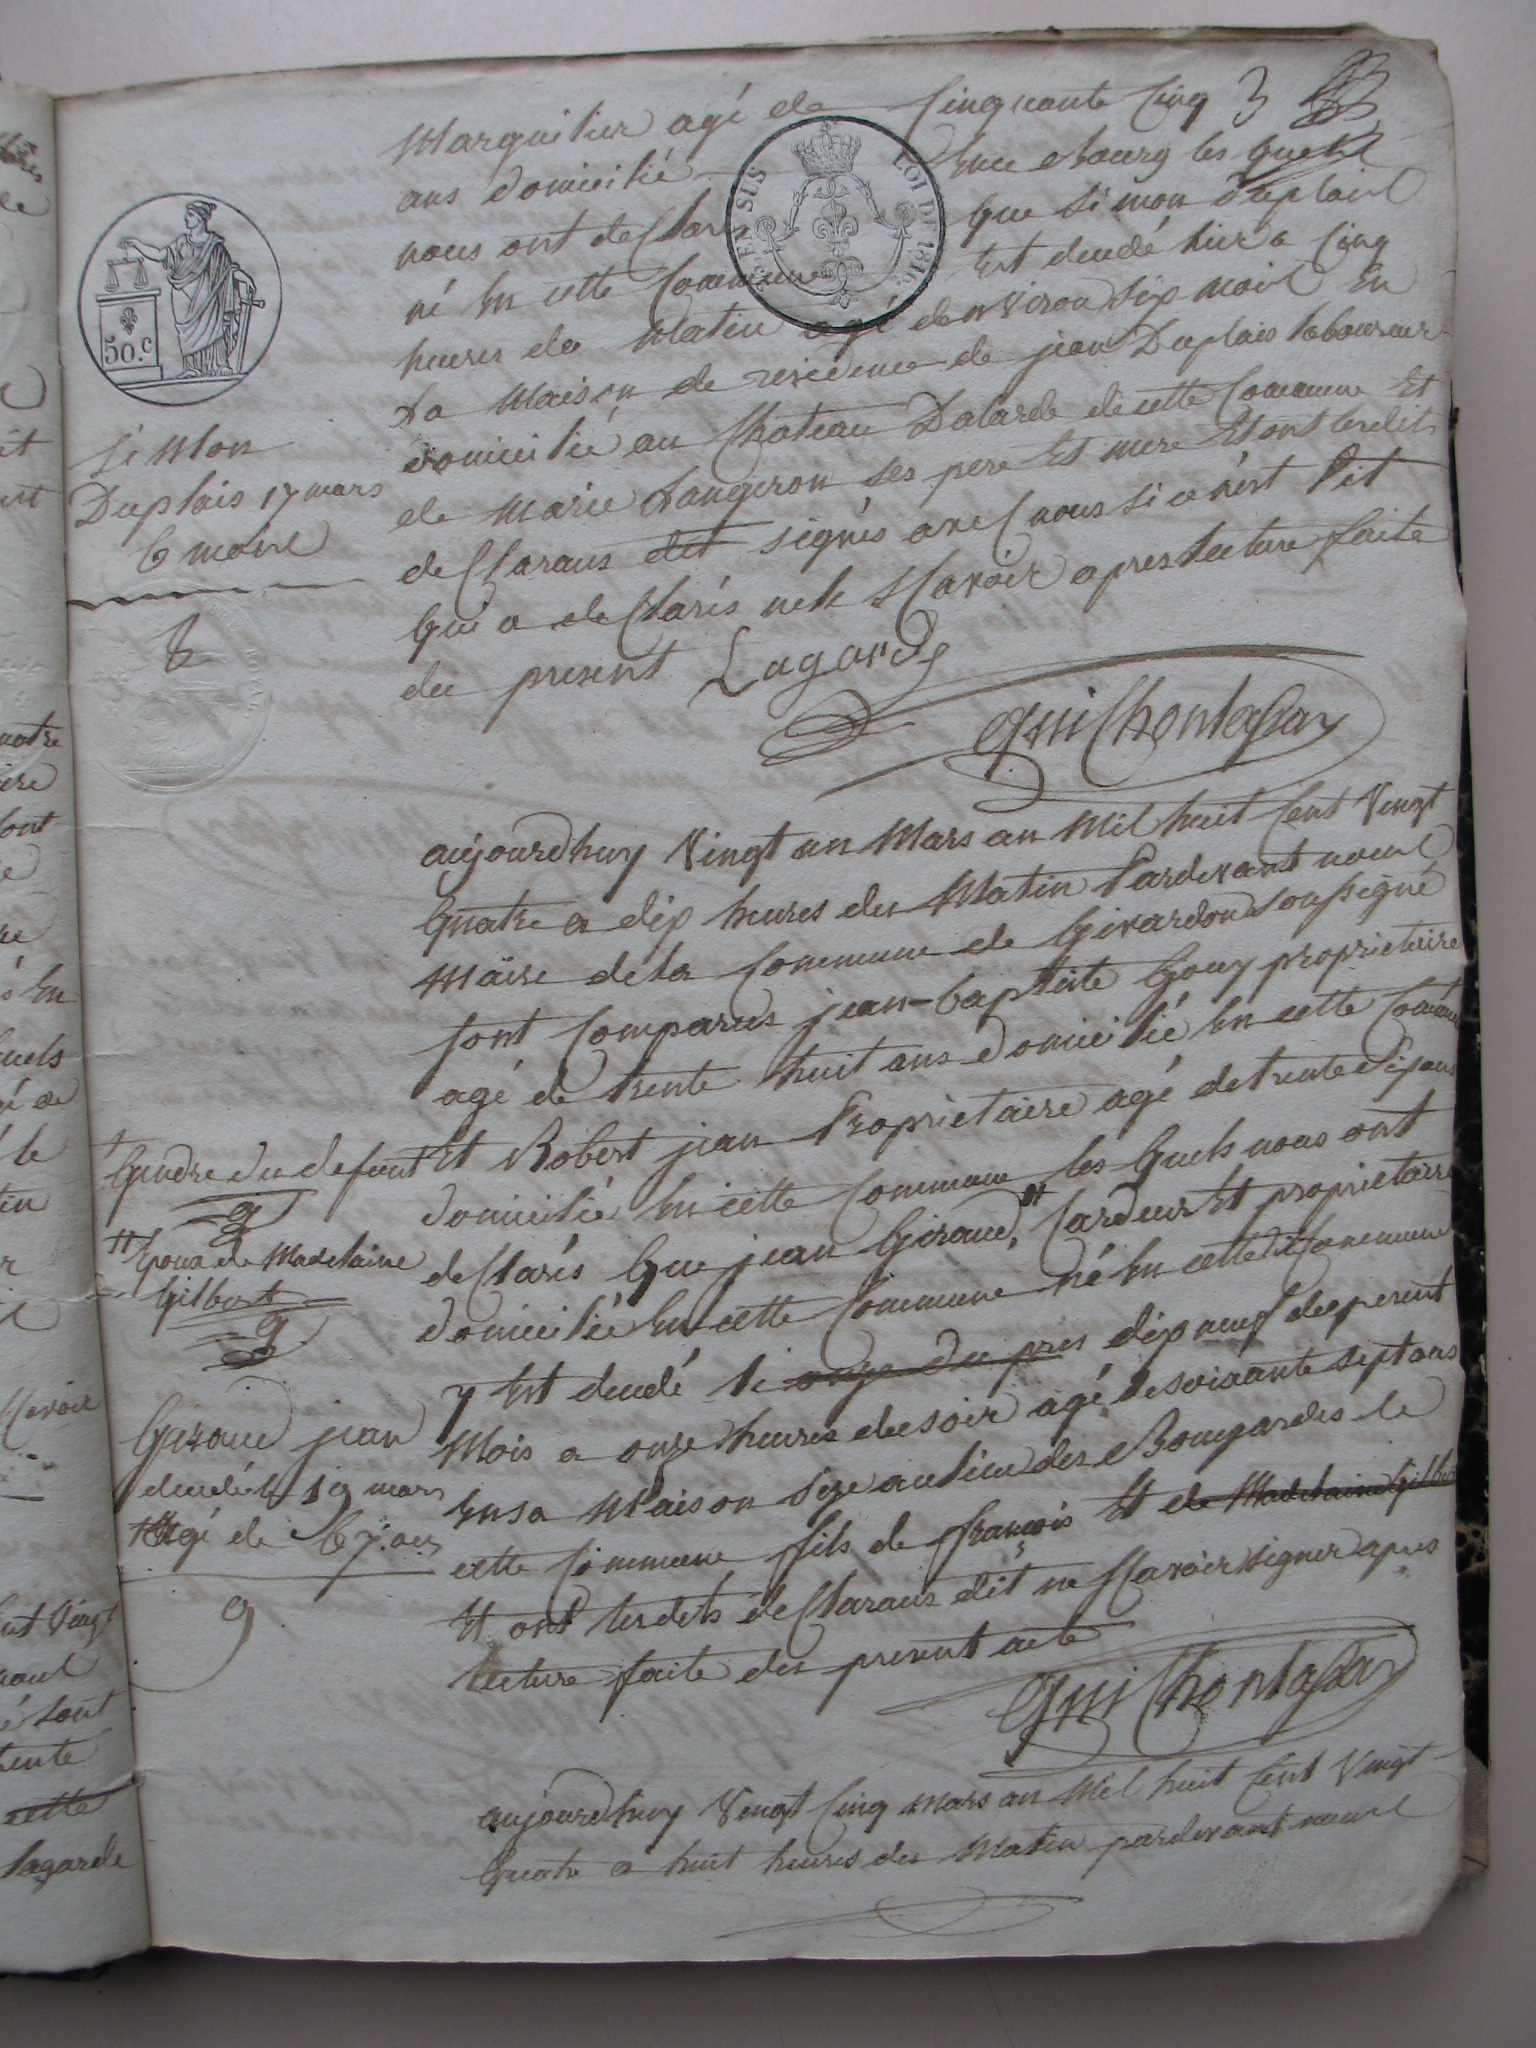 Marguilier agé de Cinquante Cinq 3
ans domicilié en ce bourg les quels
nous ont declaré que Simon Duplaix
né en cette Commune Est decedé hier a Cinq
heures du Matin agé denviron Six mois En
La Maison de residence de jean Duplais laboureur
domicilié au Chateau Dalarde de cette Commune Et
de Marie Laugeron ses pere Et mere Et ont lesdits
declarans dit signés avec nous si ce n'est Pit
qui a declarés ne le Scavoir apres lecture faite
du present Lagarde
Guilhontassar
LOI DE 1816
50.c
Simon
Duplais 17 mars
6 mois
8
ROYAL
aujourdhuy Vingt un Mars an Mil huit Cent Vingt
quatre a dix heures du Matin Pardevant nous
Maire de la Commune de Givardon Soussigné
Sont Comparus jean-baptiste Gouy proprietaire
agé de trente huit ans domicilié en cette Commune
Et Robert jean Proprietaire agé de trente Six ans
domicilié en cette Commune les quels nous ont
declarés que jean Giraud, Cardeur Et proprietaire
domicilié en cette Commune né en cette dt Commune
y Est decedé le onze du pres dix neuf du present
Mois a onze heures du soir agé de soixante sept ans
en sa Maison size au lieu des Bougardes de
cette Commune fils de françois Et de Madelaine Gilbert
Et ont lesdits declarans dit ne Scavoir signer apres
lecture faite du present acte
Guilhontassar
† Gendre du defunt
g
†† Epoux de Madelaine
Gilbert
g
Giraud jean
decedé le 19 mars
agé de 67 ans
9
aujourdhuy Vingt Cinq Mars an Mil huit Cent Vingt
quatre a huit heures du Matin pardevant nous